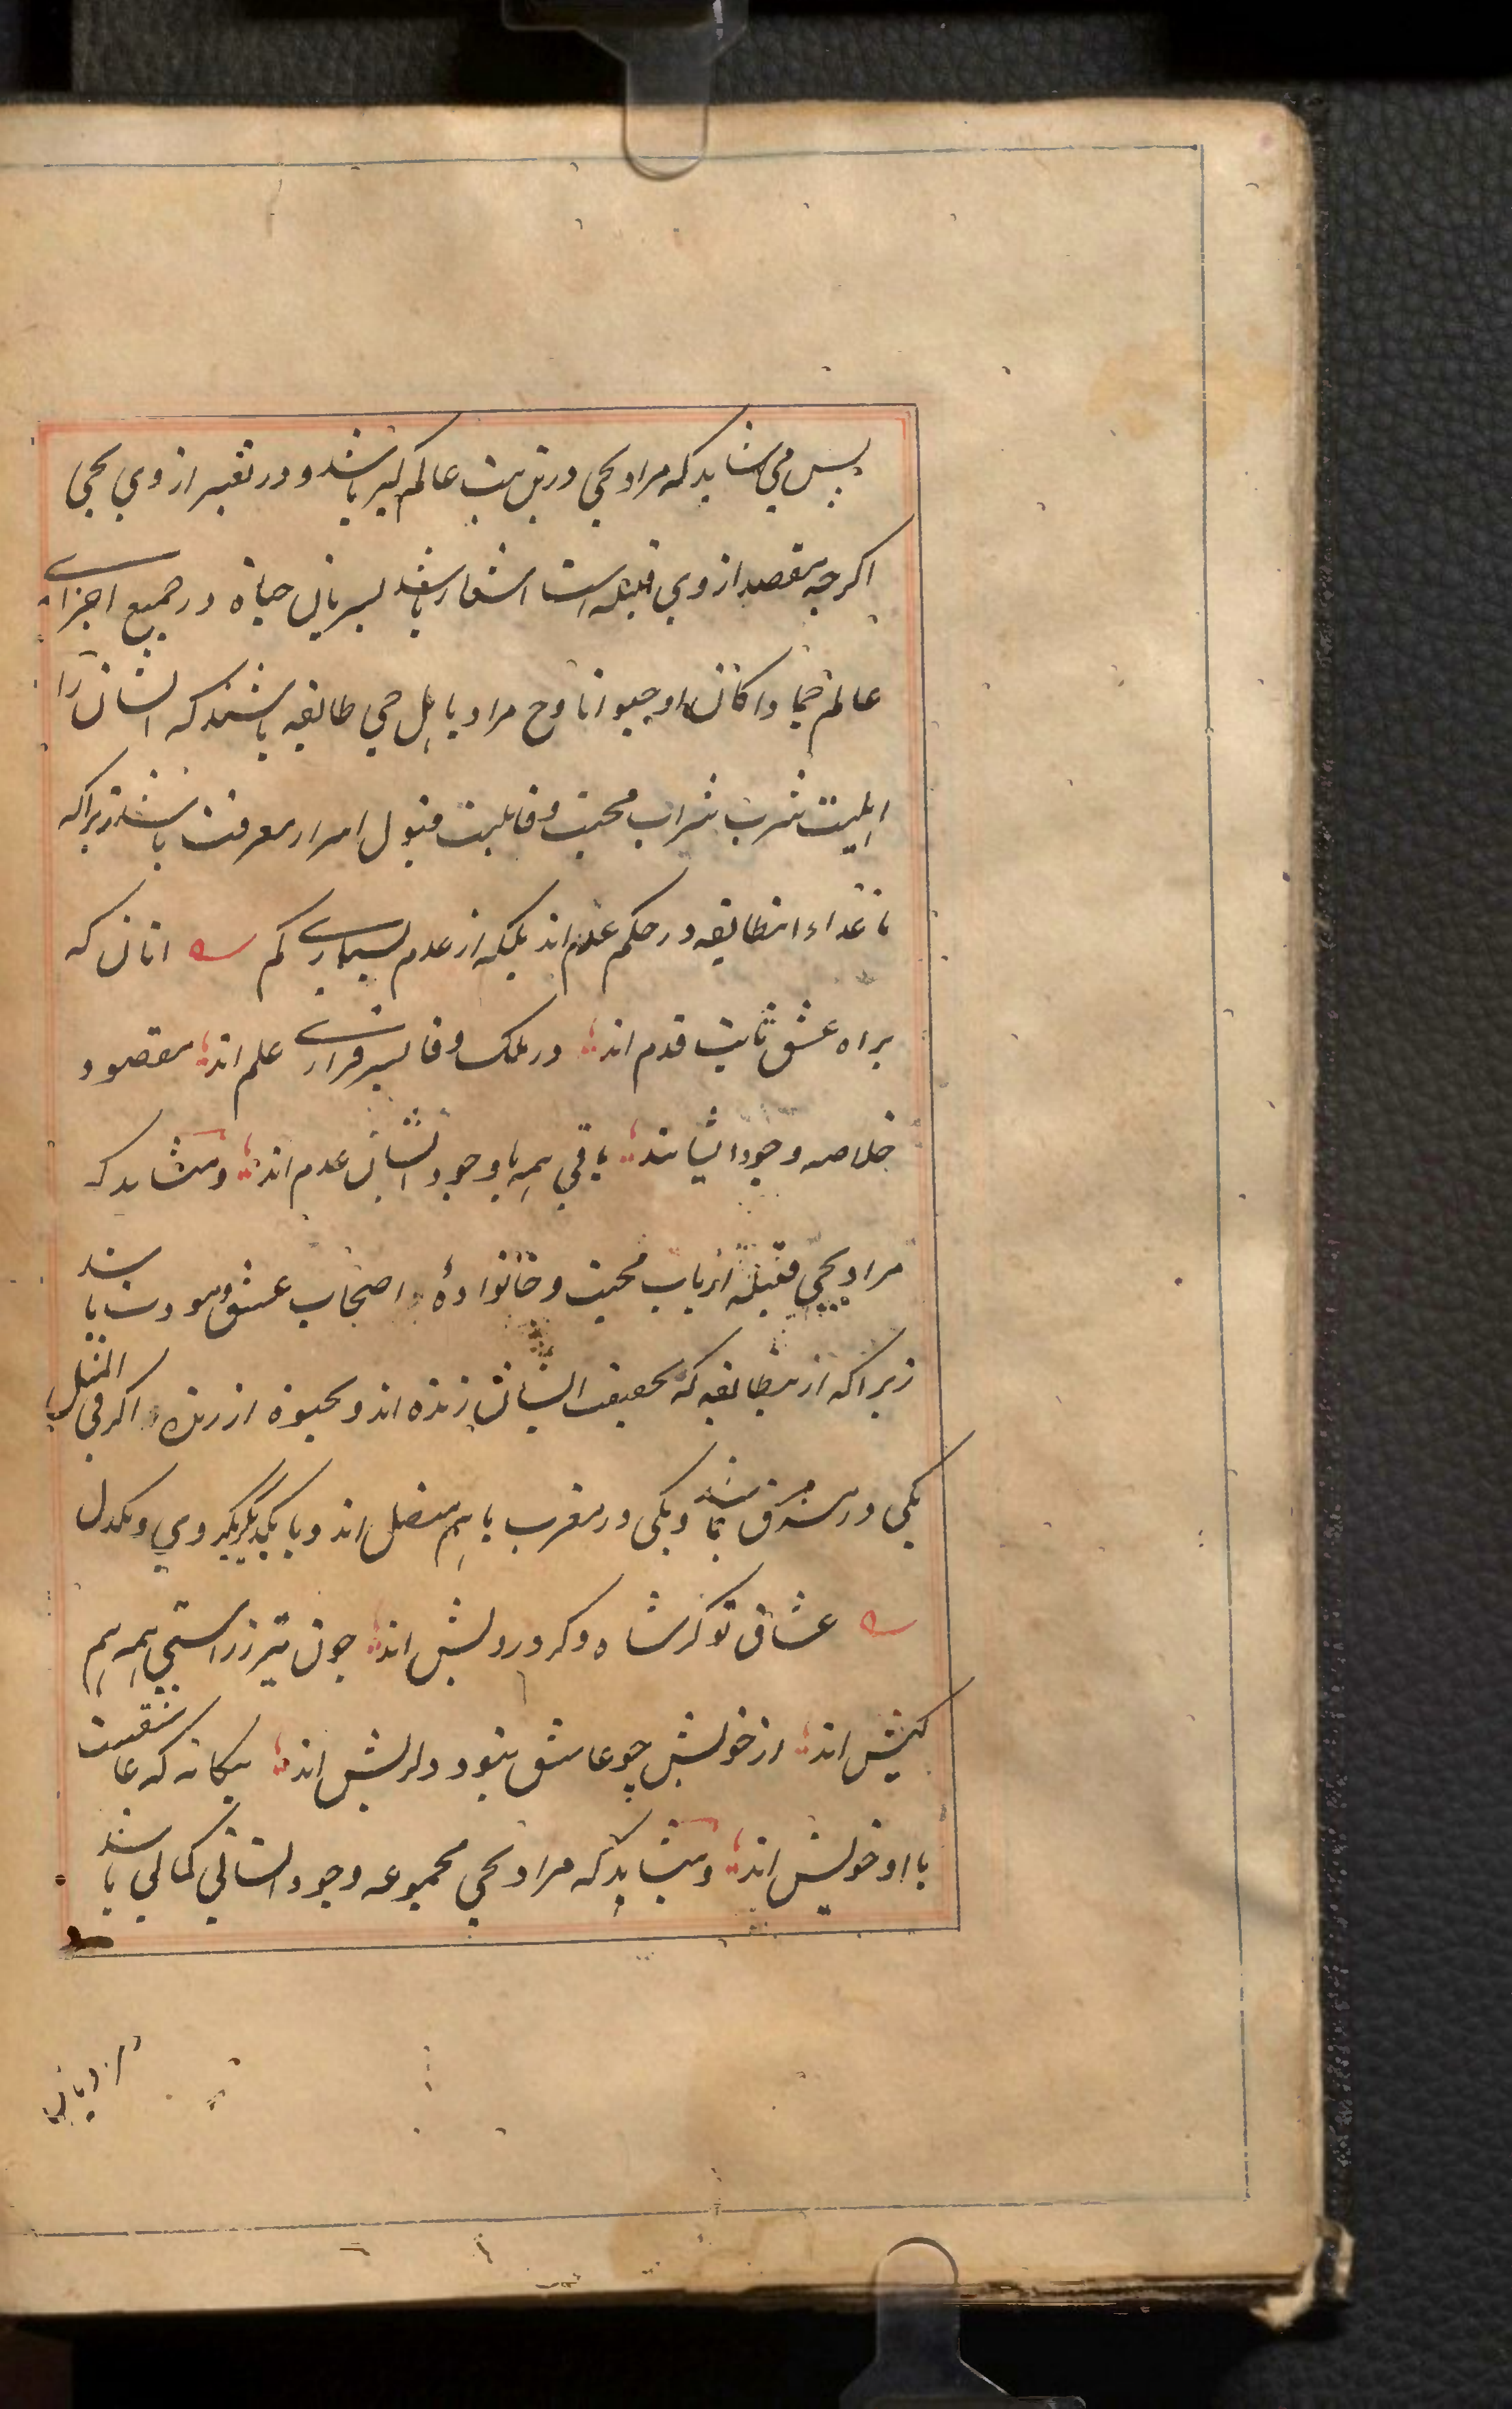 پس می شاید که مراد بحی درین بیت عالم کبیر باشد و در تعبیر از وی بحی
اکرچه مقصد از وی قبیله است اشعار باشد بسریان حیاة در جمیع اجزای
عالم جمادا کان او حیوانا و ح مراد باهل حی طایفه باشند که ایشان را
اهلیت شرب شراب محبت و قابلیت قبول اسرار معرفت باشد زیرا که
ماعداء اینطایفه در حکم عدم اند بلکه از عدم بسیاری کم انان که
براه عشق ثابت قدم اند در ملک وفا بسرفرازی علم اند مقصود
خلاصه وجود ایشانند باقی همه با وجود ایشان عدم اند و میشاید که
مراد بحی قبیله ارباب محبت و خانوادهٔ اصحاب عشق و مودت باشد
زیرا که ازینطایفه که بحقیقت ایشان زنده اند و بحیوة ارزنده اکر فی المثل
یکی در مشرق باشد و یکی در مغرب باهم متصل اند و با یکدیگر یکروی و یکدل
عشاق تو کر شاه و کر درویش اند چون تیر ز راستی همه هم
کیش اند از خویش چو عاشق نبود دلریش اند بیکانه که عاشقیست
با او خویش اند و میشاید که مراد بحی مجموعه وجود انسانی کمالی باشد